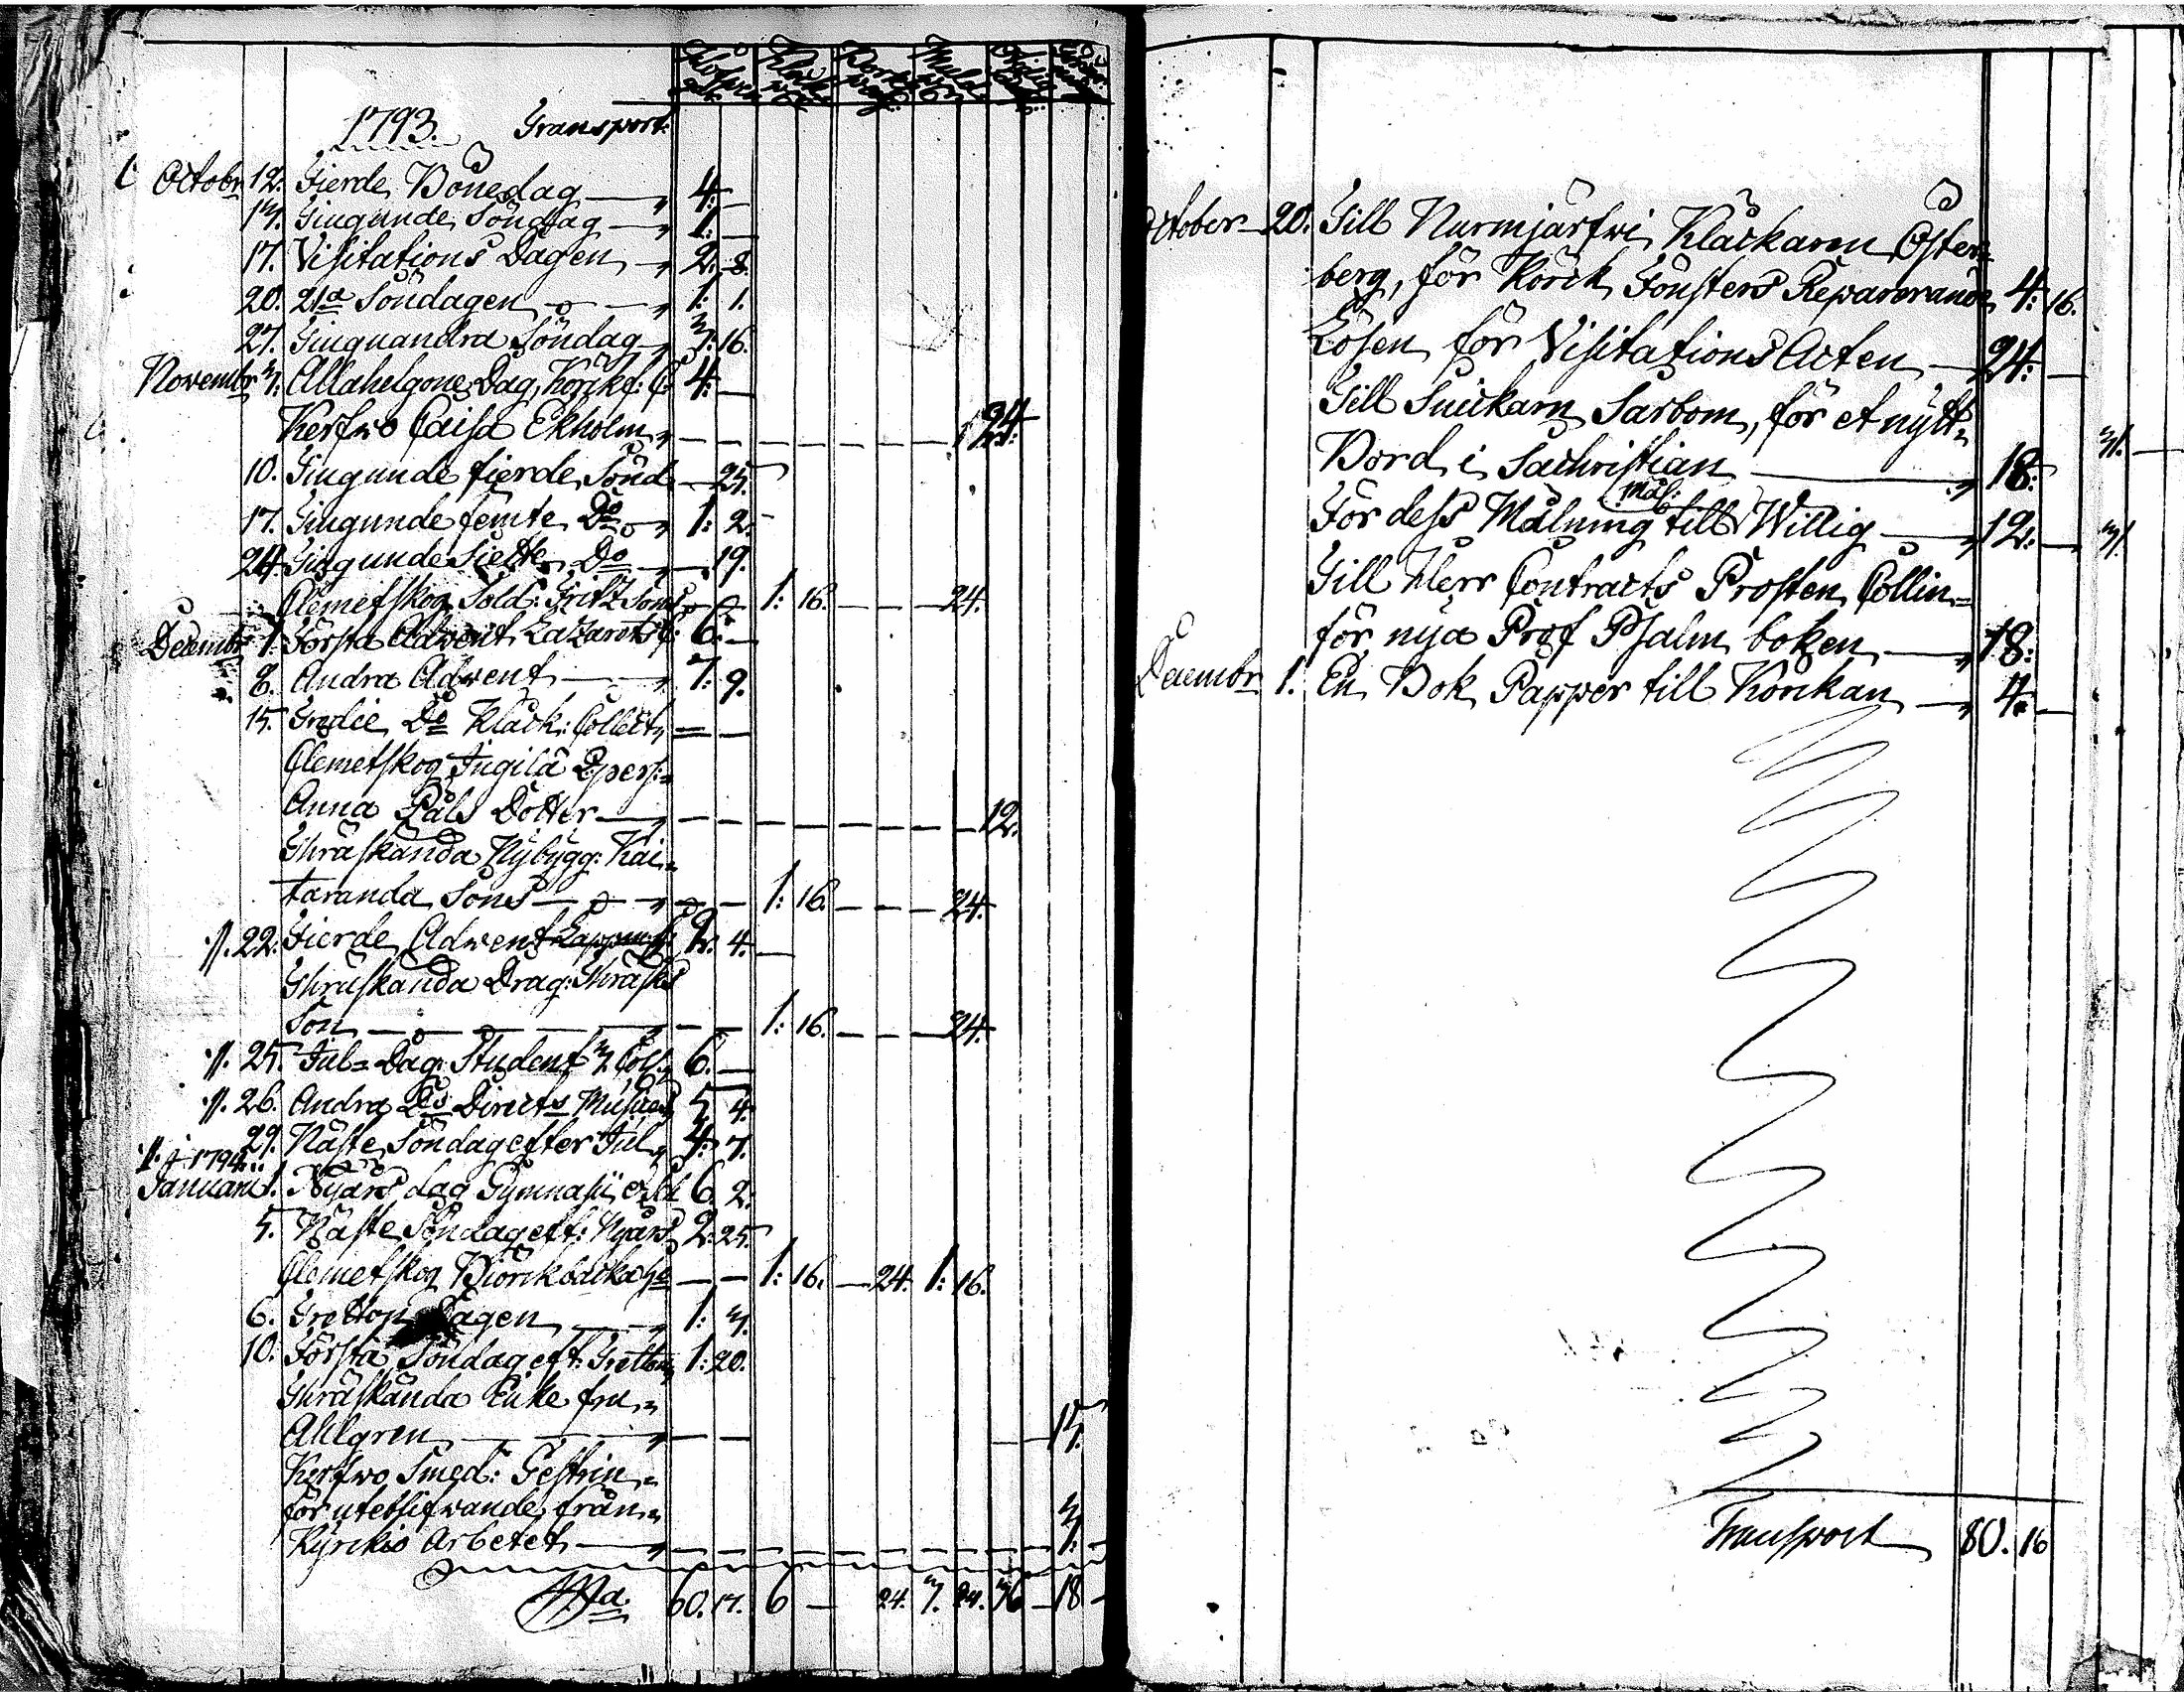 1793. Transport:
Octobr 12. Fierde Bönedag 4:
Tiugunde Söndag 1:
17. Visitations Dagen 2: 8.
20. 21a Söndagen 1: 1.
27. Tiuguandra Söndag 3: 16.
Novembr 3. Allahelgone Dag, Körkf: C: 4:
Kerfwo Caisa Ekholm 24
10. Tiugunde fierde Sönd 25.
17. Tiugunde femte Do 1: 2.
24. Tiugunde siette Do 19.
Clemetskog Sold: Fritz Sons 1: 16. 24.
Decembr 1. Första Advent Lazarets C: 6:
8. Andra Advent 7: 9.
15. Tredie Do Klåck: Collect
Clemetskog Jngila
Anna Påls Dotter 12.
Thräskända Nybygg: Kai=
taranda Sons 1: 16. 24.
22. Fierde Advent 2. 4.
Thräskända Drag: Thräsks
Son 1: 16. 24.
25. Jul=Dag. Student Coll. 6.
26. Andra Do Directs 5 4.
29. Näste Söndag efter Jul 4: 7.
1794.
Januarii 1. Nyårs dag Gymnasii 6. 2.
5. Näste Söndag eft: Nyårs 2: 25.
Clemetskog Biörkbacka 1: 16. 24. 1: 16.
6. Trettон Dagen 1: 3.
10. Första Söndag eft: Trettон 1: 20.
Thräskända Enke fru
Ahlgren 15.
Kerfwo Smed: Gestrin
för uteblifwande från
Kyrkio Arbetet 3.
Sa. 60. 17. 6 24. 7. 24. 36 18
October 20. Till Nurmjärfwi Klåckaren Öster=
berg, för Körck Fönsters Reparerande 4: 16.
Lösen för Visitations Acten 24:
Till Snickarn Sarbom, för et nytt
Bord i Sachristian 18:
För dess Målning till Mål: Willig 12:
Till Herr Contracts Prosten Collin
för nya Prof Psalm boken 18:
Decembr 1. En Bok Papper till Körkan 4.
Transport 80. 16